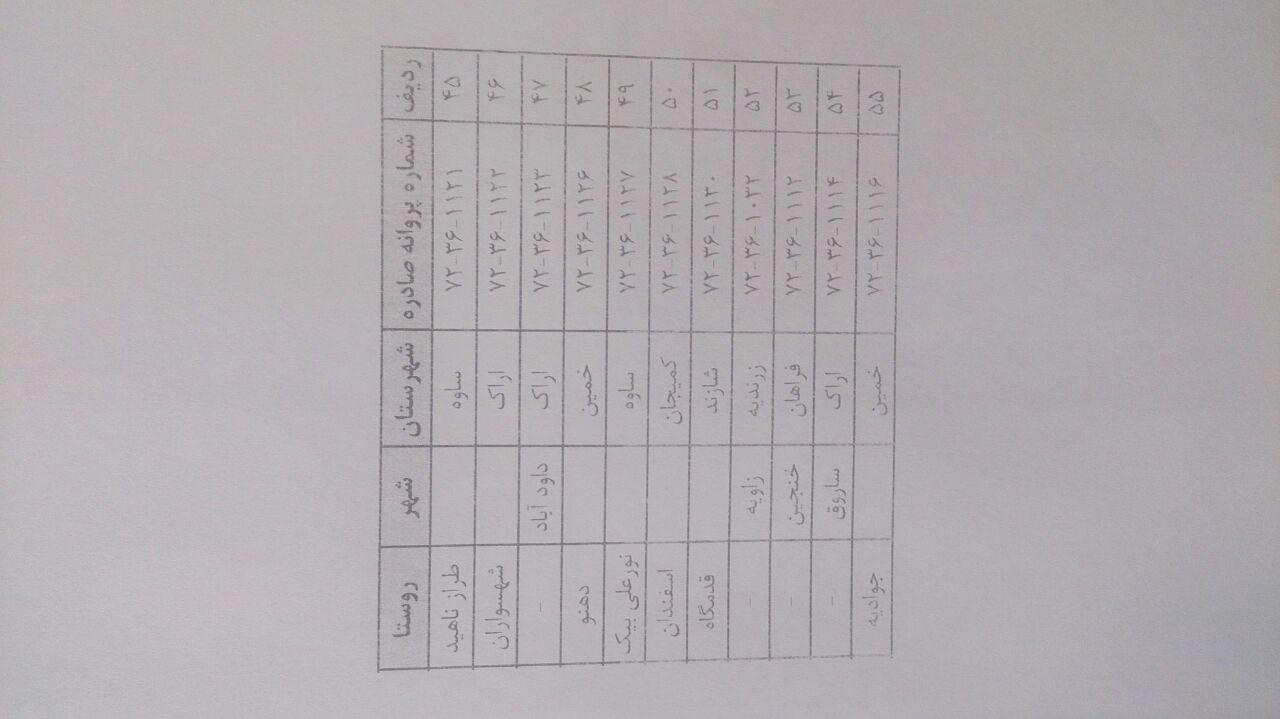 ردیف شماره پروانه صادره شهرستان شهر روستا
۴۵ ۷۲-۳۶-۱۱۲۱ ساوه طراز ناهید
۴۶ ۷۲-۳۶-۱۱۲۲ اراک شهسواران
۴۷ ۷۲-۳۶-۱۱۲۳ اراک داود آباد -
۴۸ ۷۲-۳۶-۱۱۲۶ خمین دهنو
۴۹ ۷۲-۳۶-۱۱۲۷ ساوه نورعلی بیک
۵۰ ۷۲-۳۶-۱۱۲۸ کمیجان اسفندان
۵۱ ۷۲-۳۶-۱۱۳۰ شازند قدمگاه
۵۲ ۷۲-۳۶-۱۰۳۲ زرندیه زاویه -
۵۳ ۷۲-۳۶-۱۱۱۲ فراهان خنجین -
۵۴ ۷۲-۳۶-۱۱۱۴ اراک ساروق -
۵۵ ۷۲-۳۶-۱۱۱۶ خمین جوادیه